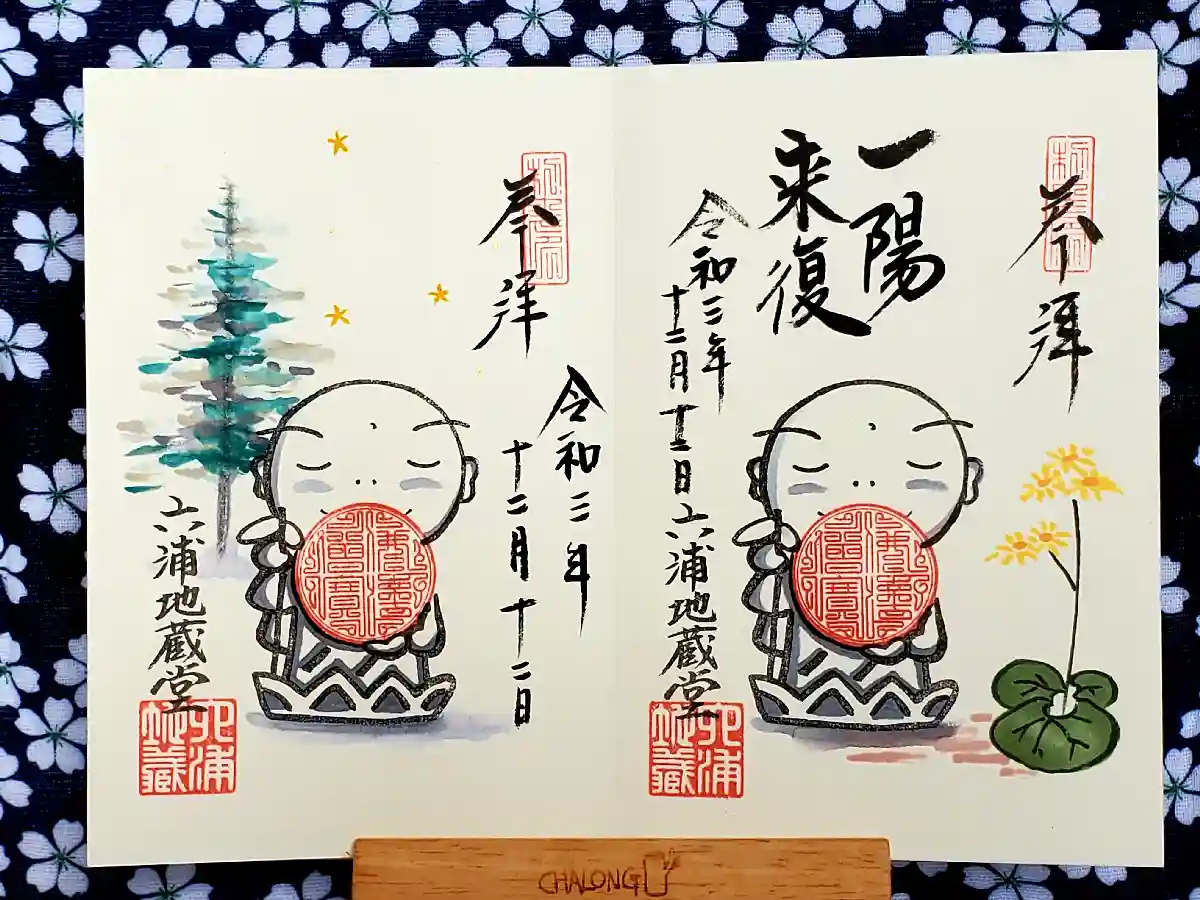 奉拝
一陽
来復
令和三年
十二月十二日
六浦地蔵堂
六浦
地蔵
奉拝
令和三年
十二月十二日
六浦地蔵堂
六浦
地蔵
CHALONG